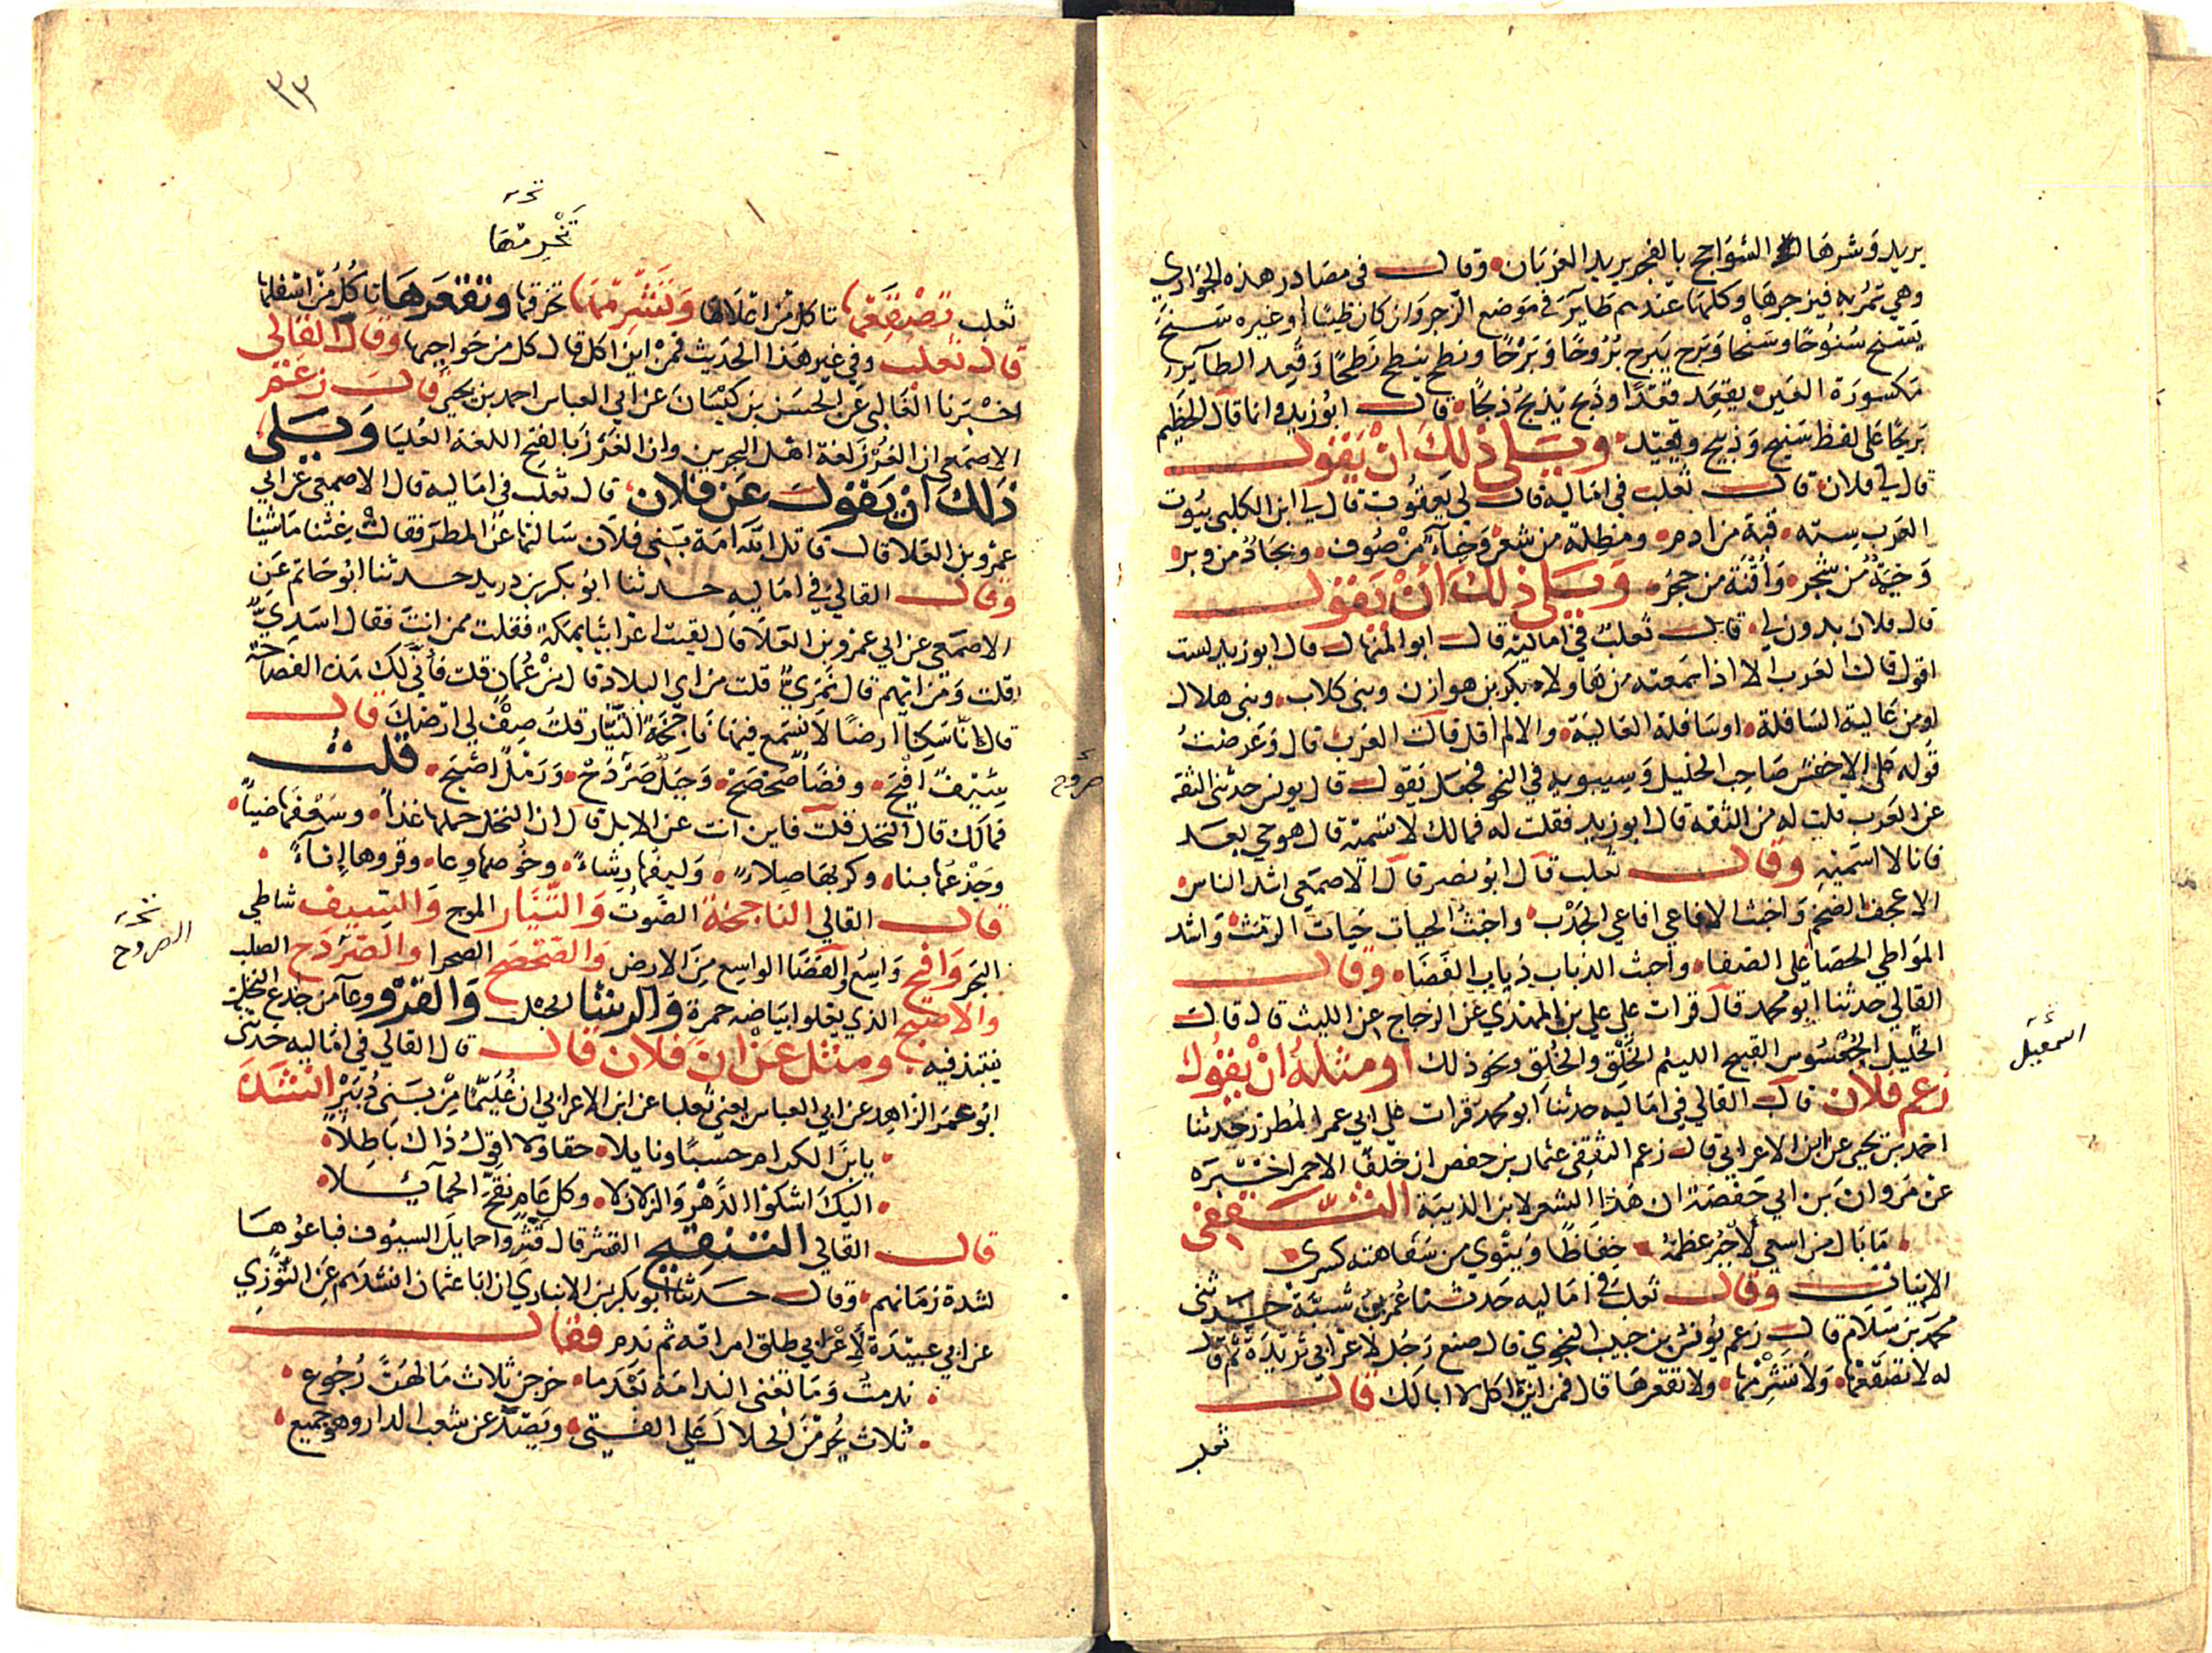 يريد وشرها السواجح بالفجر يريد الغربان وقال في مصادر هذه الجواري
وهي تمر به فيزجرها وكلها عندهم طاير في موضع الزجر وان كان ظبيا او غيره سنح
يسنح سنوحا وسنحا وبرح يبرح بروحا وبرحا ونطح ينطح نطحا وقعد الطاير
مكسورة العين يقعد قعدا وذبح يذبح ذبحا قال ابو زيد وانما قال الخطيم
بريحا على لفظ سنيح وذبيح وقعيد ويلي ذلك ان يقول
قال لي فلان قال ثعلب في اماليه قال لي يعقوب قال لي ابن الكلبي بيوت
العرب سته قبة من ادم ومظلة من شعر وخباء من صوف وبجاد من وبر
وخيمة من شجر واقنة من حجر ويلي ذلك ان يقول
قال فلان بدون لي قال ثعلب في اماليه قال ابو المنهال قال ابو زيد لست
اقول قالت العرب الا اذا سمعته من هاولاء بكر بن هوازن وبني كلاب وبني هلال
او من عالية السافلة او سافلة العالية والا لم اقل قالت العرب قال وعرضت
قوله على الاخفش صاحب الخليل وسيبويه في النحو فجعل يقول قال يونس حدثني الثقة
عن العرب قلت له من الثقه قال ابو زيد فقلت له فمالك لا تسميه قال هو حي بعد
فانا لا اسميه وقال ثعلب قال ابو نصر قال الاصمعي اشد الناس
الاعجف الضخم واخبث الافاعي افاعي الجدب واخبث الحيات حيات الرمث واشد
المواطي الحصا على الصفا واخبث الذياب ذياب الغضا وقال
القالي حدثنا ابو محمد قال قرات على علي بن المهدي عن الزجاج عن الليث قال قال
اسمعيل
الخليل الجعسوس القبيح اللئيم الخلق والخلق ونحو ذلك او مثله ان يقول
زعم فلان قال القالي في اماليه حدثنا ابو محمد قرات على ابي عمر المطرز حدثنا
احمد بن يحيى عن ابن الاعرابي قال زعم الثقفي عثمان بن حفص ان خلفا الاحمر اخبره
عن مروان بن ابي حفصة ان هذا الشعر لابن الذيبة الثقفي
ما بال من اسعى لاجبر عظمه حفاظا وينوي من سفاهته كسري
الابيات وقال ثعلب في اماليه حدثنا عمر بن شبة حدثني
محمد بن سلام قال زعم يونس بن حبيب النحوي قال صنع رجل لاعرابي ثريدة ثم قال
له لا تصقعها ولا تشرمها ولا تقعرها قال فمن اين اكل لا ابا لك قال
ثعلب
٣٣
تخرمها
ثعلب تصقعها تاكل من اعلاها وتشرمها تخرقها وتقعرها تاكل من اسفلها
قال ثعلب وفي غير هذا الحديث فمن اين اكل قال كل من جواجبها وقال القالي
اخبرنا الغالبي عن الحسن بن كيسان عن ابي العباس احمد بن يحيى قال زعم
الاصمعي ان الغرز لغة اهل البحرين وان الغرز بالفتح اللغة العليا ويلي
ذلك ان يقول عن فلان قال ثعلب في اماليه قال الاصمعي عن ابي
عمرو بن العلا قال قاتل الله امة بني فلان سالتها عن المطر فقالت غثنا ماشئنا
وقال القالي في اماليه حدثنا ابو بكر بن دريد حدثنا ابو حاتم عن
الاصمعي عن ابي عمرو بن العلا قال لقيت اعرابيا بمكة فقلت ممن انت فقال اسدي
قلت ومن ايهم قال نمري قلت من اي البلاد قال من عمان قلت فانى لك هذه الفصاحة
قال انا سكنا ارضا لا نسمع فيها ناجخة التيار قلت صف لي ارضك قال
سيف افيح وفضا صحصح وجبل صردح ورمل اصبح قلت
فمالك قال النخل قلت فاين انت عن الابل قال ان النخل حملها غذاء وسعفها ضياء
وجذعها بنا وكربها صلاء وليفها رشاء وخوصها وعا وقروها اناء
قال القالي الناجخة الصوت والتيار الموج والسيف شاطي
نخه
الصروح
البحر وافيح واسع والفضا الواسع من الارض والصحصح الصحرا والصردح الصلب
والاصبح الذي يعلو بياضه حمرة والرشا الحبل والقرو وعآ من جذع النخل
ينتبذ فيه ومثل عن ان فلان قال قال القالي في اماليه حدثني
ابو عمر الزاهد عن ابي العباس يعني ثعلبا عن ابن الاعرابي ان غليما من بني دبير انشده
يا ابن الكرام حسبا ونايلا حقا ولا اقول ذاك باطلا
اليك اشكوا الدهر والزلازلا وكل عام نقح الحمآيلا
قال القالي التنقيح القشر قال قشروا حمايل السيوف فباعوها
لشدة زمانهم وقال حدثنا ابو بكر بن الانباري ان ابا عثمان انشدهم عن التوزي
عن ابي عبيدة لاعرابي طلق امراته ثم ندم فقال
ندمت وما تغني الندامة بعدما خرجن ثلاث ما لهن رجوع
ثلاث يحرمن الحلال على الفتى ويصدعن شعب الدار وهو جميع